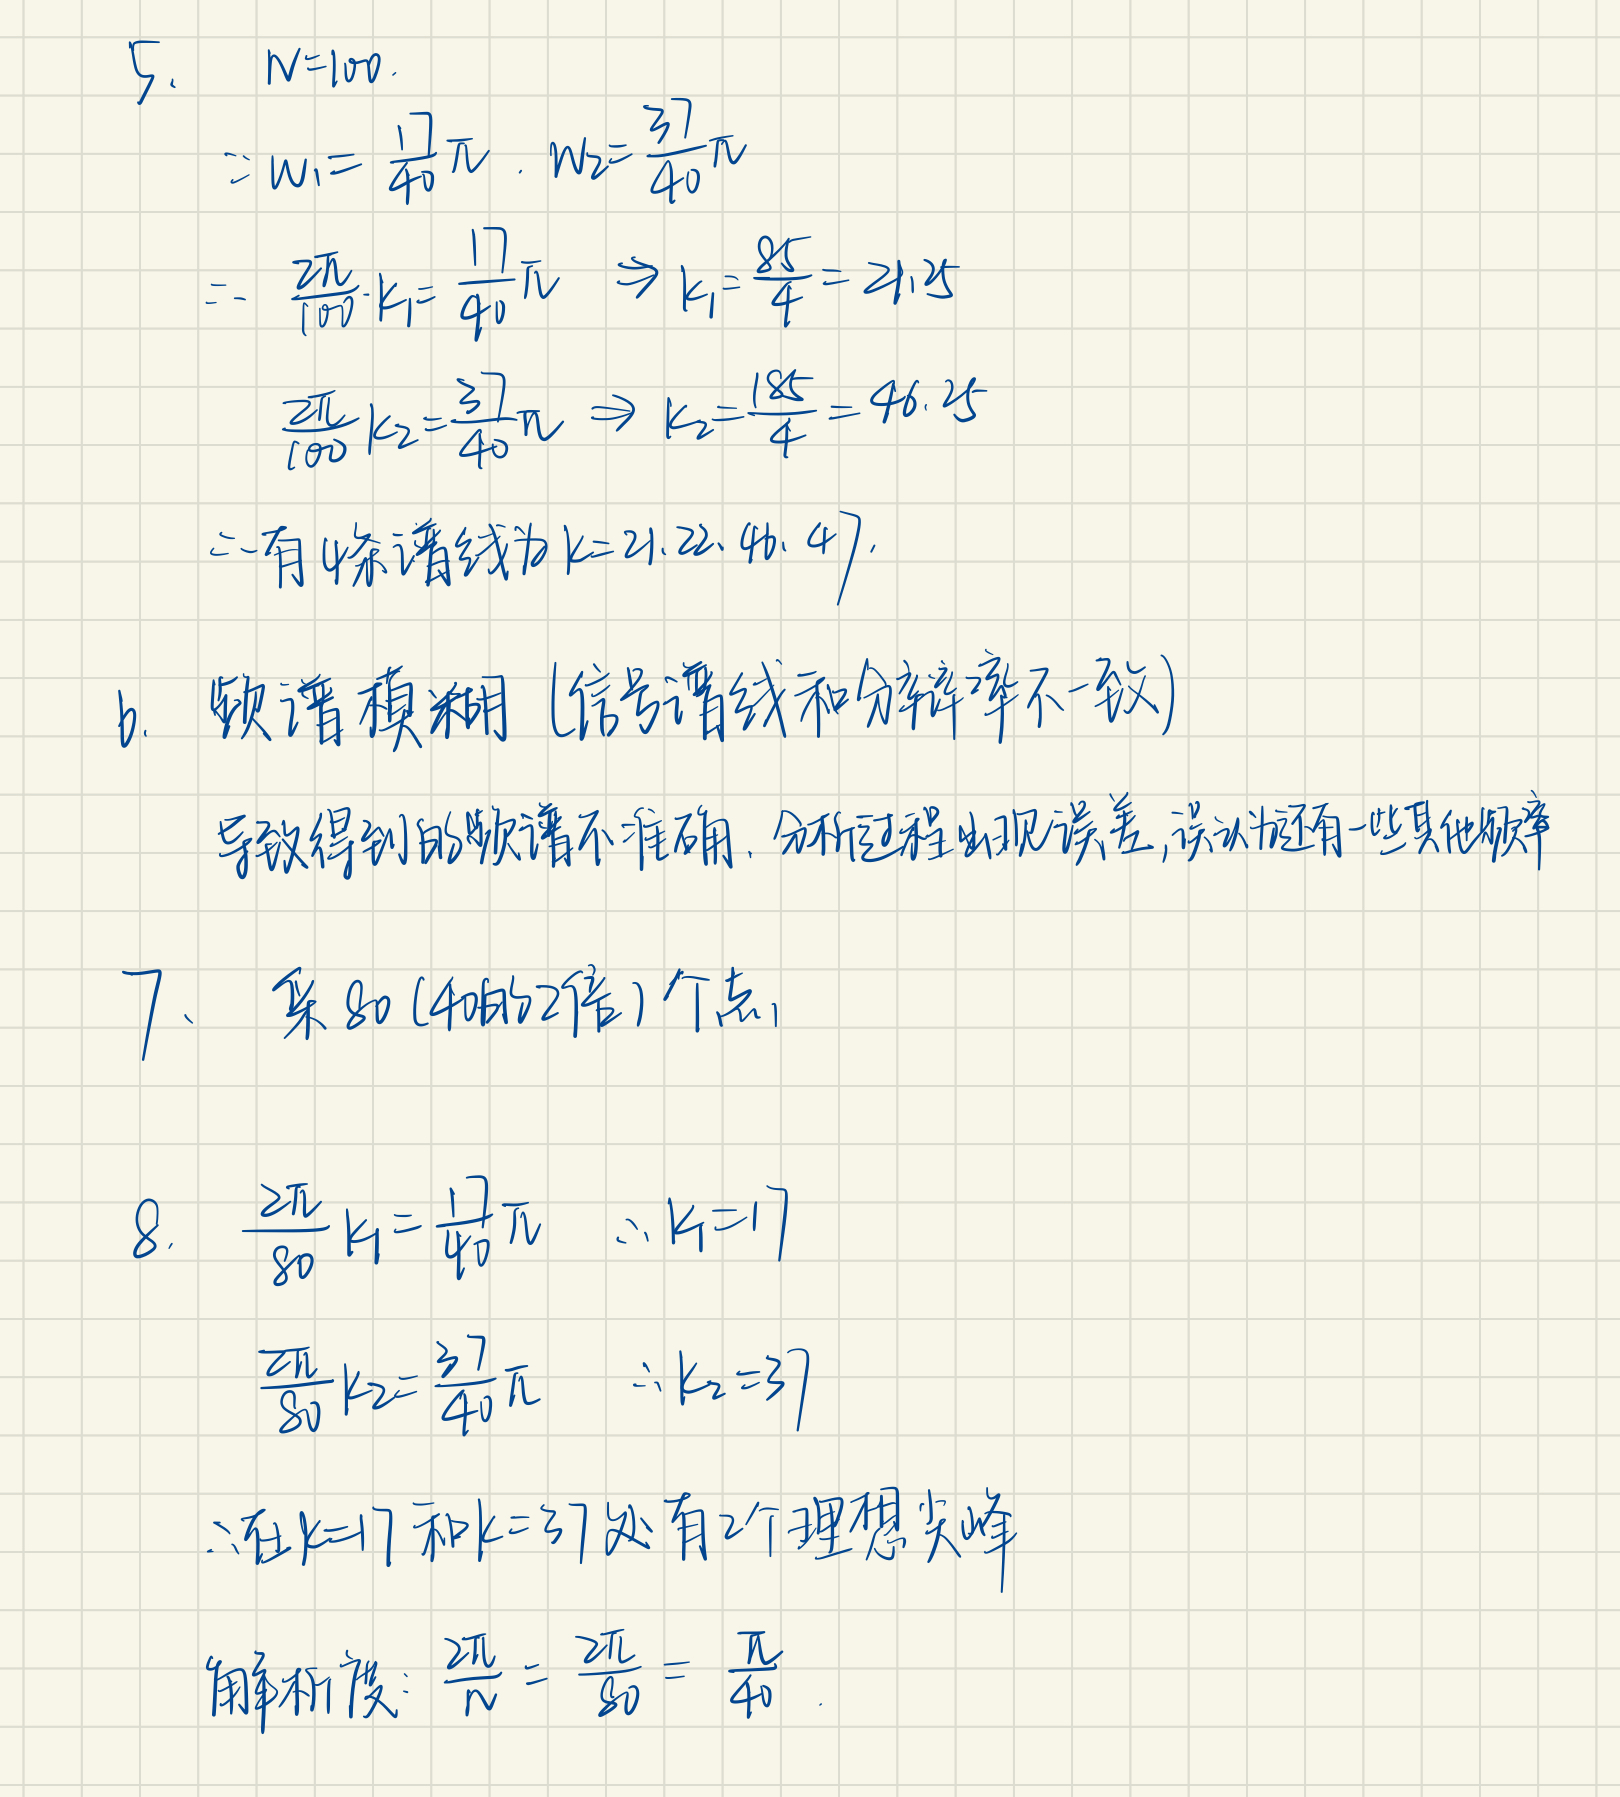 5. N=100.
∵ w₁ = 17/40 π . w₂ = 37/40 π
∴ 2π/100 · k₁ = 17/40 π ⇒ k₁ = 85/4 = 21.25
2π/100 k₂ = 37/40 π ⇒ k₂ = 185/4 = 46.25
∴ 有4条谱线为 k=21.22.46.47.
6. 频谱模糊 (信号谱线和分辨率不一致)
导致得到的频谱不准确. 分析过程出现误差,误认为还有一些其他频率
7、 采80(40的2倍)个点,
8. 2π/80 k₁ = 17/40 π ∴ k₁=17
2π/80 k₂ = 37/40 π ∴ k₂=37
∴ 在 k=17 和 k=37 处有2个理想尖峰
解析度: 2π/N = 2π/80 = π/40 .